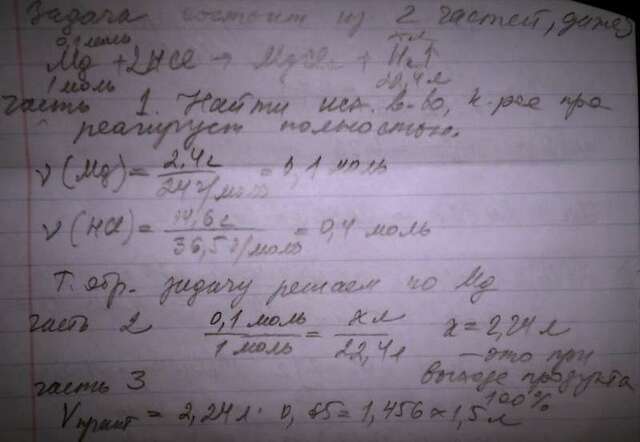 Задача состоит из 2 частей, даже
0,1 моль x л
Mg + 2HCl → MgCl₂ + H₂↑
1 моль 22,4 л
часть 1. Найти исх. в-во, к-рое про
реагирует полностью.
ν(Mg) = 2,4 г / 24 г/моль = 0,1 моль
ν(HCl) = 14,6 г / 36,5 г/моль = 0,4 моль
Т. обр. задачу решаем по Mg
часть 2 0,1 моль / 1 моль = x л / 22,4 л x = 2,24 л
– это при
выходе продукта
100%
часть 3
Vпракт = 2,24 л · 0,65 = 1,456 ≈ 1,5 л